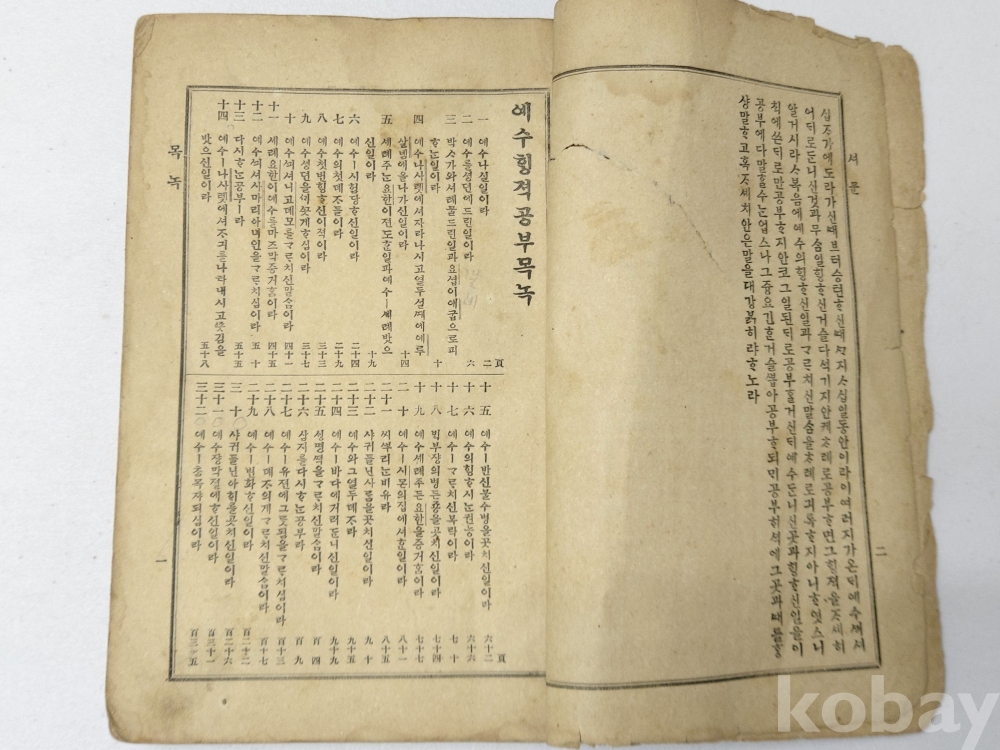 셔문
십ᄌᆞ가에도라가신때브터승텬ᄒᆞ신때ᄭᆞ지ᄉᆞ십일동안이라이여러지가온ᄃᆡ예수ᄭᅴ셔
어ᄃᆡ로ᄃᆞᆫ니신것과무ᄉᆞᆷ일ᄒᆡᆼᄒᆞ신거슬다석기지안케ᄎᆞ례로공부ᄒᆞ면그ᄒᆡᆼ젹을ᄌᆞ셰히
알거시라ᄉᆞ복음에예수의ᄒᆡᆼᄒᆞ신일과ᄀᆞᄅᆞ치신말ᄉᆞᆷ을ᄎᆞ례로긔록ᄒᆞ지아니ᄒᆞ엿스니
칙에쓴ᄃᆡ로만공부ᄒᆞ지안코그일된ᄃᆡ로공부ᄒᆞᆯ거신ᄃᆡ예수ᄃᆞᆫ니신곳과ᄒᆡᆼᄒᆞ신일을이
공부에다말ᄒᆞᆯ수ᄂᆞᆫ업스나그즁요긴ᄒᆞᆫ거슬ᄲᅩᆸ아공부ᄒᆞ되 공부 에그곳과때를ᄒᆞᆼ
샹말ᄒᆞ고혹ᄌᆞ셰치안은말을대강ᄇᆞᆰ히랴ᄒᆞ노라
二
예수ᄒᆡᆼ젹공부목녹
頁
一 예수나실일이라 二
二 예수를셩뎐에드린일이라 六
三 박ᄉᆞ가와셔례물드린일과요셉이애굽으로피
ᄒᆞᆫ일이라 十
四 예수나사렛에셔자라나시고열두셜ᄶᅢ에예루
살넴에올나가신일이라 十四
五 셰례주ᄂᆞᆫ요한이젼도ᄒᆞᆫ일과예수ㅣ셰례밧으
신일이라 十九
六 예수ㅣ시험당ᄒᆞ신일이라 二十四
七 예수의첫뎨ᄌᆞ들이라 二十九
八 예수첫번ᄒᆡᆼᄒᆞ신이젹이라 三十三
九 예수셩뎐을ᄭᆡ끗게ᄒᆞ심이라 三十七
十 예수ᄭᅴ셔니고데모를ᄀᆞᄅᆞ치신말ᄉᆞᆷ이라 四十一
十一 셰례요한이예수를마즈막증거ᄒᆞᆷ이라 四十五
十二 예수ᄭᅴ셔사마리아녀인을ᄀᆞᄅᆞ치심이라 五十
十三 다시ᄒᆞᄂᆞᆫ공부ㅣ라 五十五
十四 예수ㅣ나사렛에셔ᄌᆞ긔를나타내시고ᄶᅩᆺ김을
밧으신일이라 五十八
頁
十五 예수ㅣ반신불수병을곳치신일이라 六十二
十六 예수의ᄒᆡᆼᄒᆞ시ᄂᆞᆫ권능이라 六十六
十七 예수ㅣᄀᆞᄅᆞ치신복락이라 七十
十八 ᄇᆡᆨ부쟝의병든죵을곳치신일이라 七十四
十九 예수셰례주ᄂᆞᆫ요한을증거ᄒᆞᆷ이라 七十七
二十 예수ㅣ시몬의집에셔ᄒᆞᆫ일이라 八十一
二十一 씨ᄲᅮ리ᄂᆞᆫ비유라
二十二 샤귀들닌사ᄅᆞᆷ을곳치신일이라 九十
二十三 예수와그열두뎨ᄌᆞ라 九十五
二十四 예수ㅣ바다에거러ᄃᆞᆫ니신일이라 九十九
二十五 ᄉᆡᆼ명ᄯᅥᆨ을ᄀᆞᄅᆞ치신말ᄉᆞᆷ이라 百四
二十六 삼지를다시ᄒᆞᄂᆞᆫ공부라 百九
二十七 예수ㅣ유젼에그릇됨을ᄀᆞᄅᆞ치심이라 百十三
二十八 예수ㅣ뎨ᄌᆞ의게ᄀᆞᄅᆞ치신말ᄉᆞᆷ이라 百十七
二十九 예수ㅣ변화ᄒᆞ신일이라 百二十二
三十 샤귀들닌아ᄒᆡ를곳치신일이라 百二十六
三十一 예수쟝막졀에ᄒᆞ신일이라 百三十一
三十二 예수ㅣ춤목쟈되심이라 百三十五
목녹
一
kobay